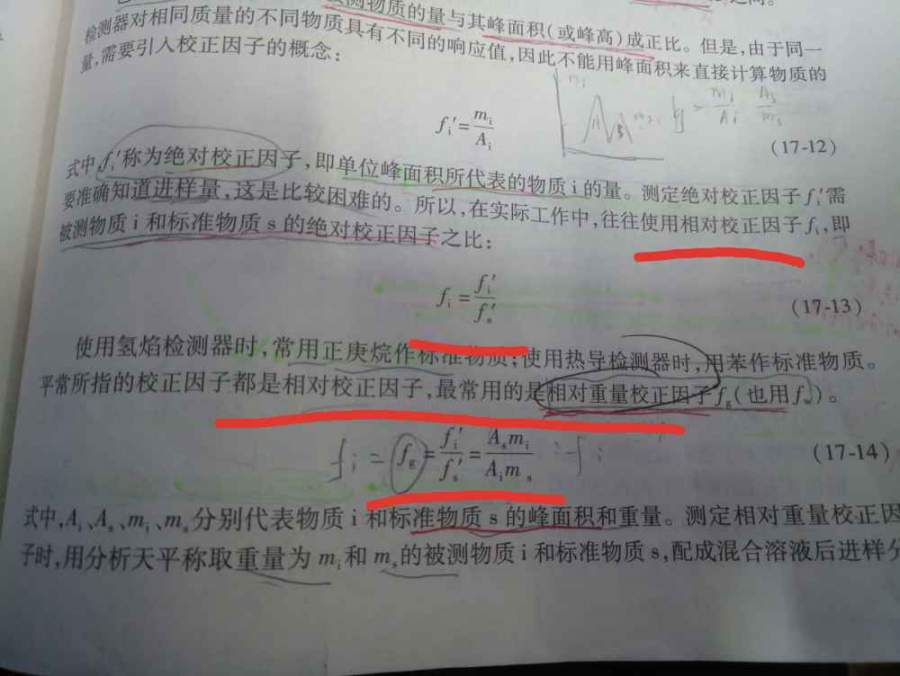 测物质的量与其峰面积(或峰高)成正比。但是,由于同一
检测器对相同质量的不同物质具有不同的响应值,因此不能用峰面积来直接计算物质的
量,需要引入校正因子的概念:
fᵢ′ = mᵢ / Aᵢ (17-12)
式中 fᵢ′称为绝对校正因子,即单位峰面积所代表的物质 i 的量。测定绝对校正因子 fᵢ′需
要准确知道进样量,这是比较困难的。所以,在实际工作中,往往使用相对校正因子 fᵢ,即
被测物质 i 和标准物质 s 的绝对校正因子之比:
fᵢ = fᵢ′ / fₛ′ (17-13)
使用氢焰检测器时,常用正庚烷作标准物质;使用热导检测器时,用苯作标准物质。
平常所指的校正因子都是相对校正因子,最常用的是相对重量校正因子 f_g(也用 f
fᵢ = f_g = fᵢ′ / fₛ′ = Aₛmᵢ / Aᵢmₛ (17-14)
式中,Aᵢ、Aₛ、mᵢ、mₛ分别代表物质 i 和标准物质 s 的峰面积和重量。测定相对重量校正因
子时,用分析天平称取重量为 mᵢ和 mₛ的被测物质 i 和标准物质 s,配成混合溶液后进样分